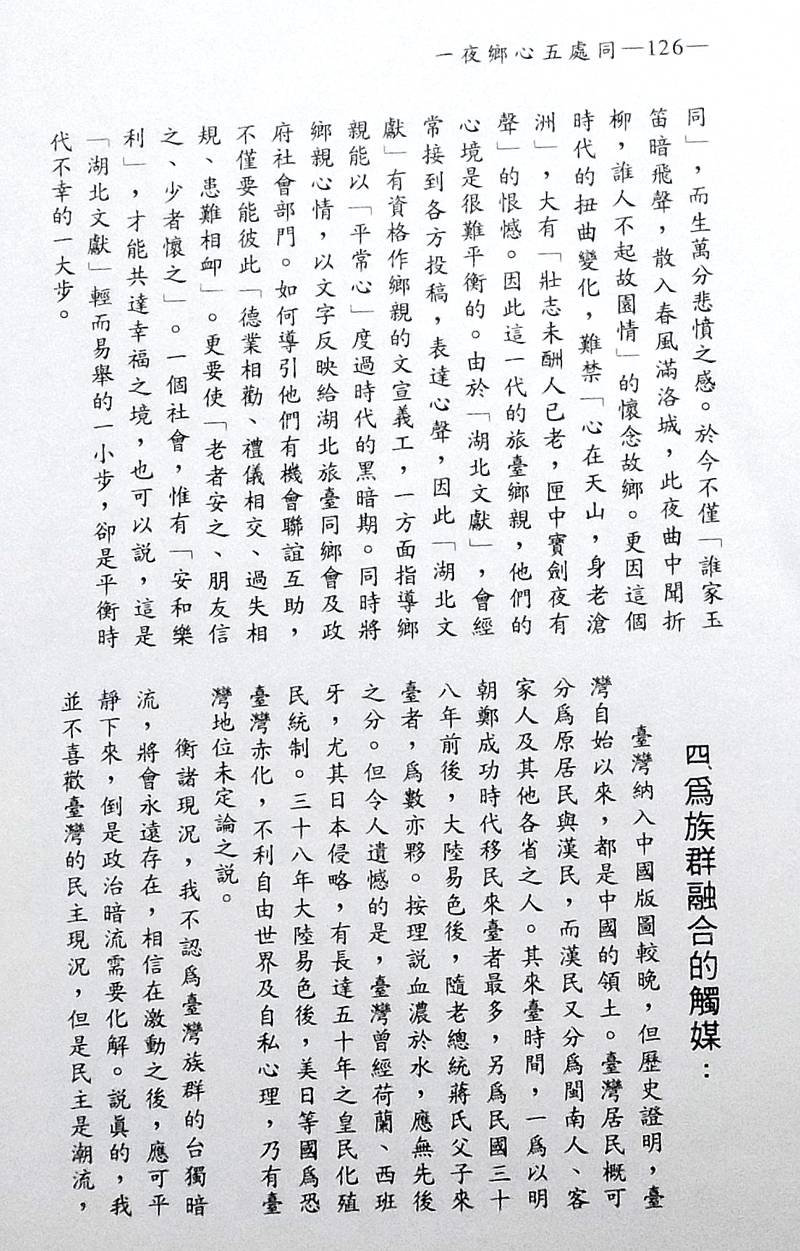 一夜鄉心五處同—126—
同」，而生萬分悲憤之感。於今不僅「誰家玉
笛暗飛聲，散入春風滿洛城，此夜曲中聞折
柳，誰人不起故園情」的懷念故鄉。更因這個
時代的扭曲變化，難禁「心在天山，身老滄
洲」，大有「壯志未酬人已老，匣中寶劍夜有
聲」的恨憾。因此這一代的旅臺鄉親，他們的
心境是很難平衡的。由於「湖北文獻」，會經
常接到各方投稿，表達心聲，因此「湖北文
獻」有資格作鄉親的文宣義工，一方面指導鄉
親能以「平常心」度過時代的黑暗期。同時將
鄉親心情，以文字反映給湖北旅臺同鄉會及政
府社會部門。如何導引他們有機會聯誼互助，
不僅要能彼此「德業相勸、禮儀相交、過失相
規、患難相卹」。更要使「老者安之、朋友信
之、少者懷之」。一個社會，惟有「安和樂
利」，才能共達幸福之境，也可以說，這是
「湖北文獻」輕而易舉的一小步，卻是平衡時
代不幸的一大步。
四、爲族群融合的觸媒：
臺灣納入中國版圖較晚，但歷史證明，臺
灣自始以來，都是中國的領土。臺灣居民概可
分爲原居民與漢民，而漢民又分爲閩南人、客
家人及其他各省之人。其來臺時間，一爲以明
朝鄭成功時代移民來臺者最多，另爲民國三十
八年前後，大陸易色後，隨老總統蔣氏父子來
臺者，爲數亦夥。按理說血濃於水，應無先後
之分。但令人遺憾的是，臺灣曾經荷蘭、西班
牙，尤其日本侵略，有長達五十年之皇民化殖
民統制。三十八年大陸易色後，美日等國爲恐
臺灣赤化，不利自由世界及自私心理，乃有臺
灣地位未定論之說。
衡諸現況，我不認爲臺灣族群的台獨暗
流，將會永遠存在，相信在激動之後，應可平
靜下來，倒是政治暗流需要化解。說眞的，我
並不喜歡臺灣的民主現況，但是民主是潮流，